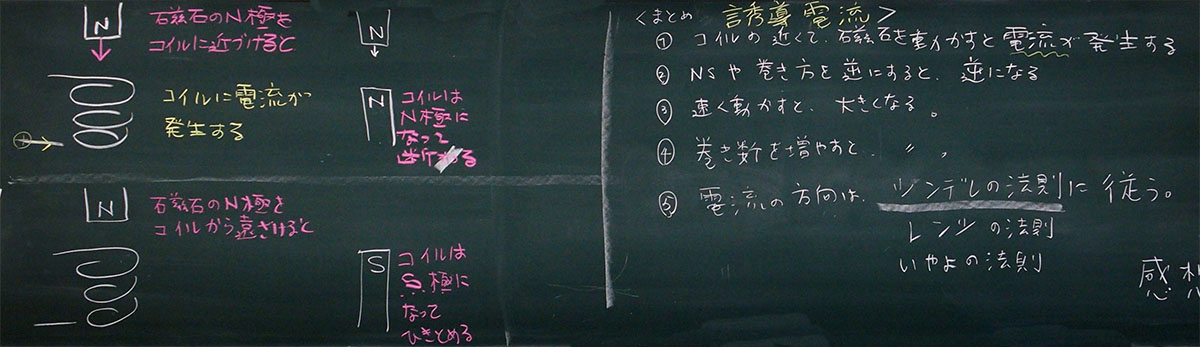 N
磁石のN極を
コイルに近づけると
コイルに電流が
発生する
N
N
コイルは
N極に
なって
N
磁石のN極を
コイルから遠ざけると
S
コイルは
S極に
なって
ひきとめる
<まとめ 誘導電流>
① コイルの近くで、磁石を動かすと電流が発生する
② NSや巻き方を逆にすると、逆になる
③ 速く動かすと、大きくなる。
④ 巻き数を増やすと、〃 。
⑤ 電流の方向は、ツンデレの法則に従う。
レンツの法則
いやよの法則
感想